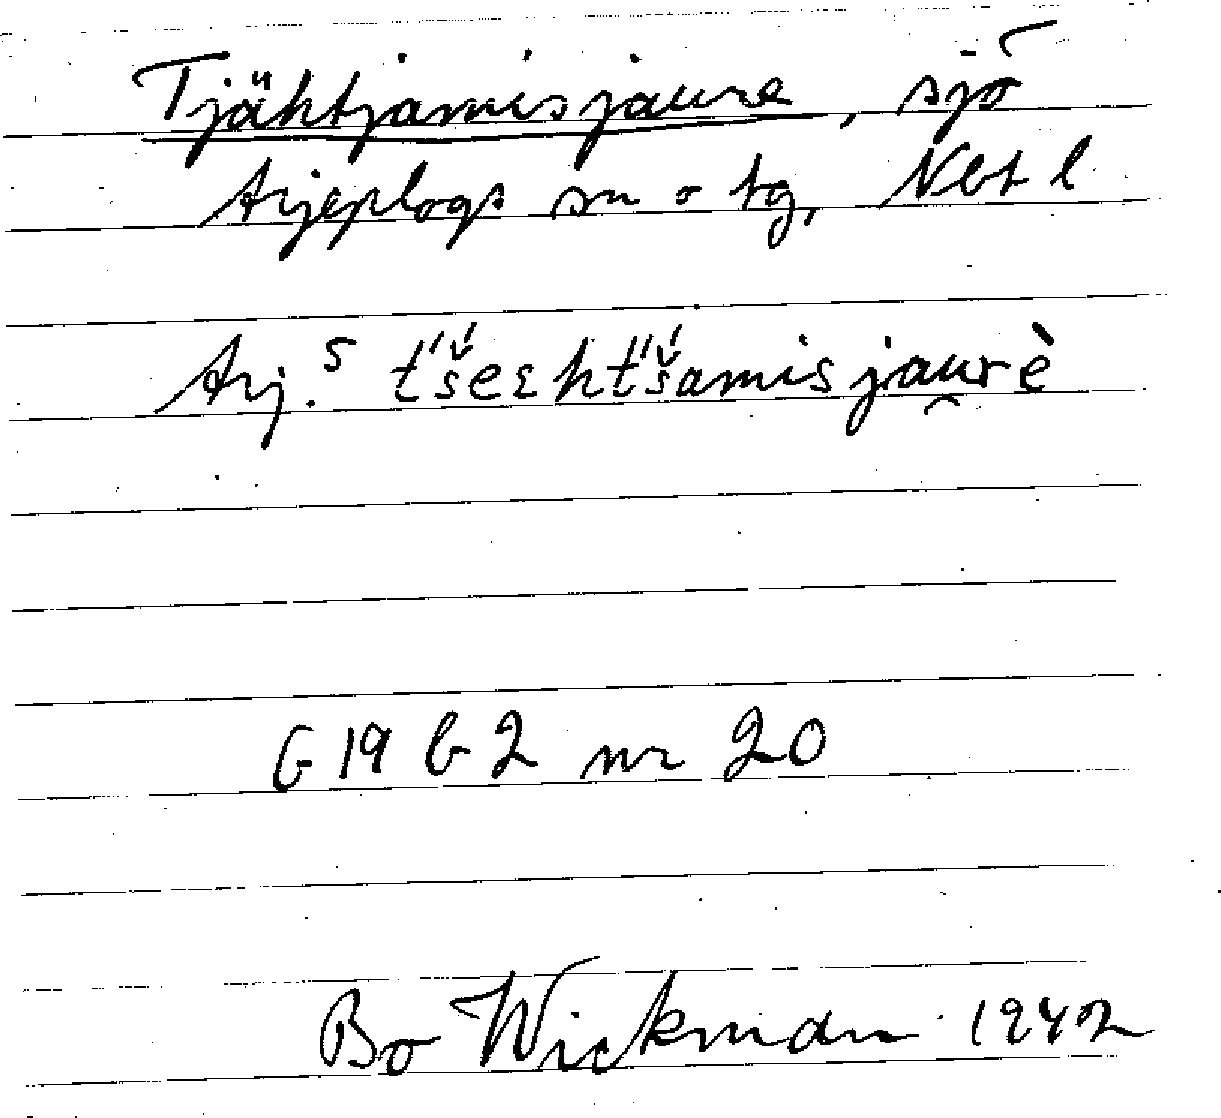 Tjähtjamisjaure, sjö
Arjeplogs sn o tg, Nbt l
Arj. S t́'š́eεht́'š́amisjau̯rè
G 19 b 2 nr 20
Bo Wickman 1942